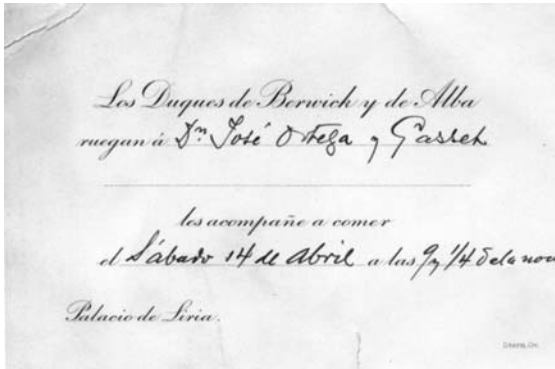 Los Duques de Berwich y de Alba
ruegan á Dn José Ortega y Gasset
les acompañe a comer
el Sábado 14 de Abril a las 9 y 1/4 de la noc
Palacio de Liria.